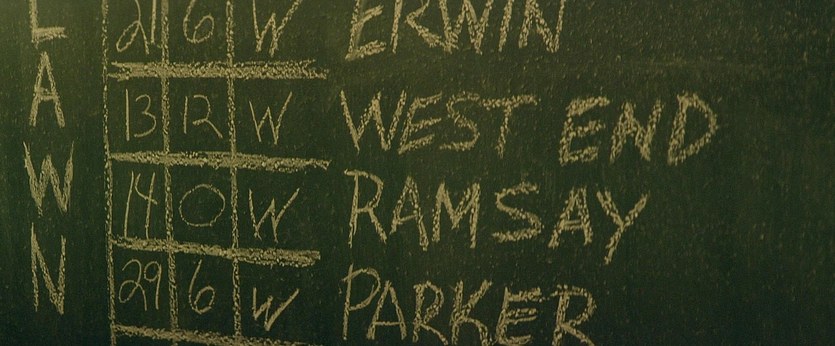 L 21 6 W ERWIN
A 13 12 W WEST END
W 14 0 W RAMSAY
N 29 6 W PARKER